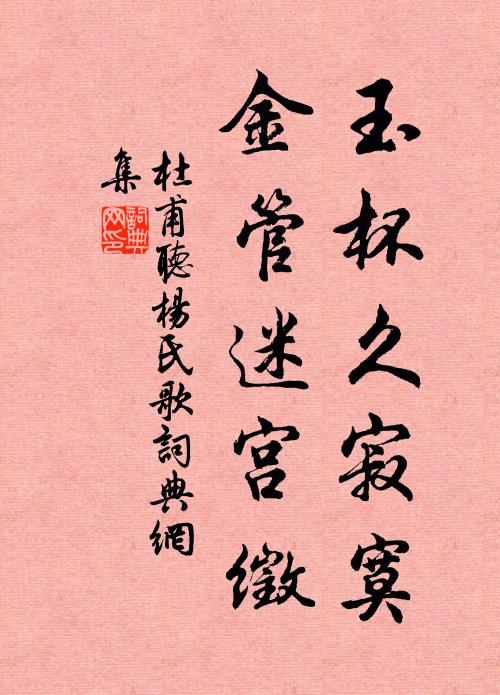 玉杯久寂寞
金管迷宮徵
杜甫聽楊氏歌詞典網
集
詞典
网印